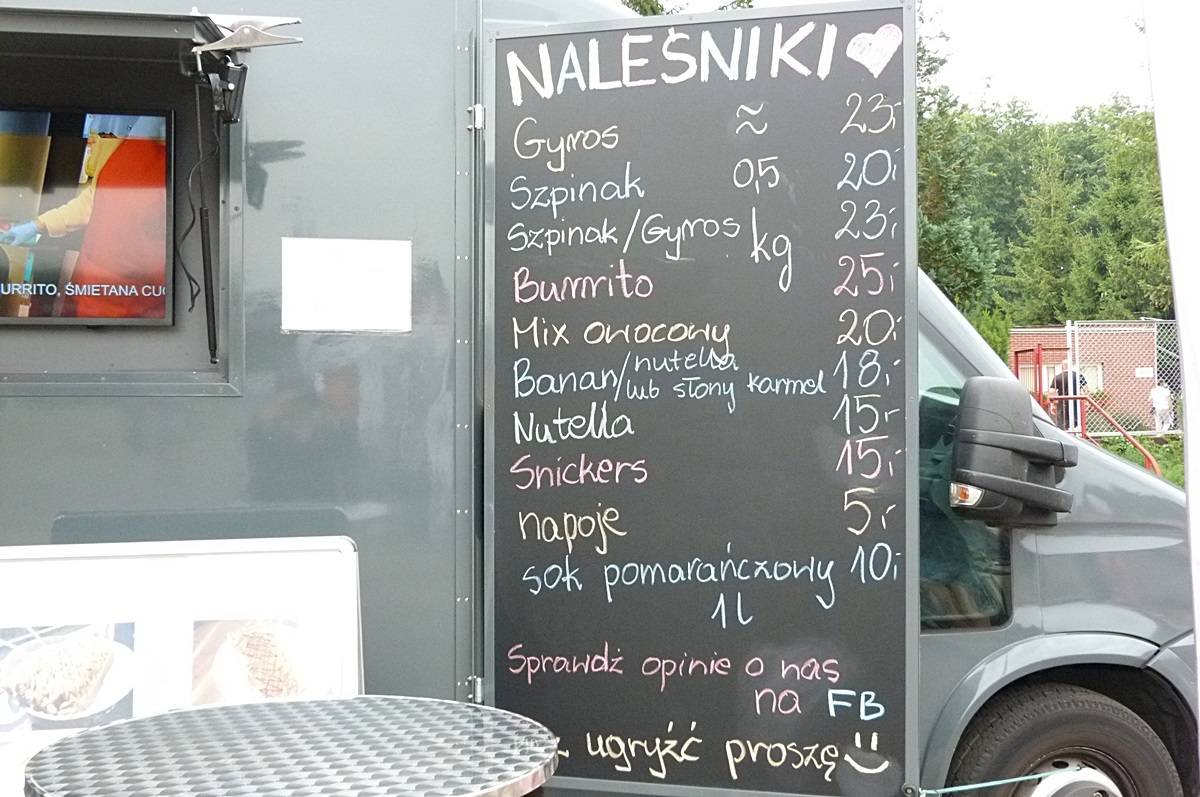 NALEŚNIKI
Gyros ~ 23,-
Szpinak 0,5 20,-
Szpinak/Gyros kg 23,-
Burrito 25,-
Mix owocowy 20,-
Banan/nutella
lub słony karmel 18,-
Nutella 15,-
Snickers 15,-
napoje 5,-
sok pomarańczowy 10,-
1l
Sprawdź opinie o nas
na FB
ugryźć proszę
URRITO, ŚMIETANA